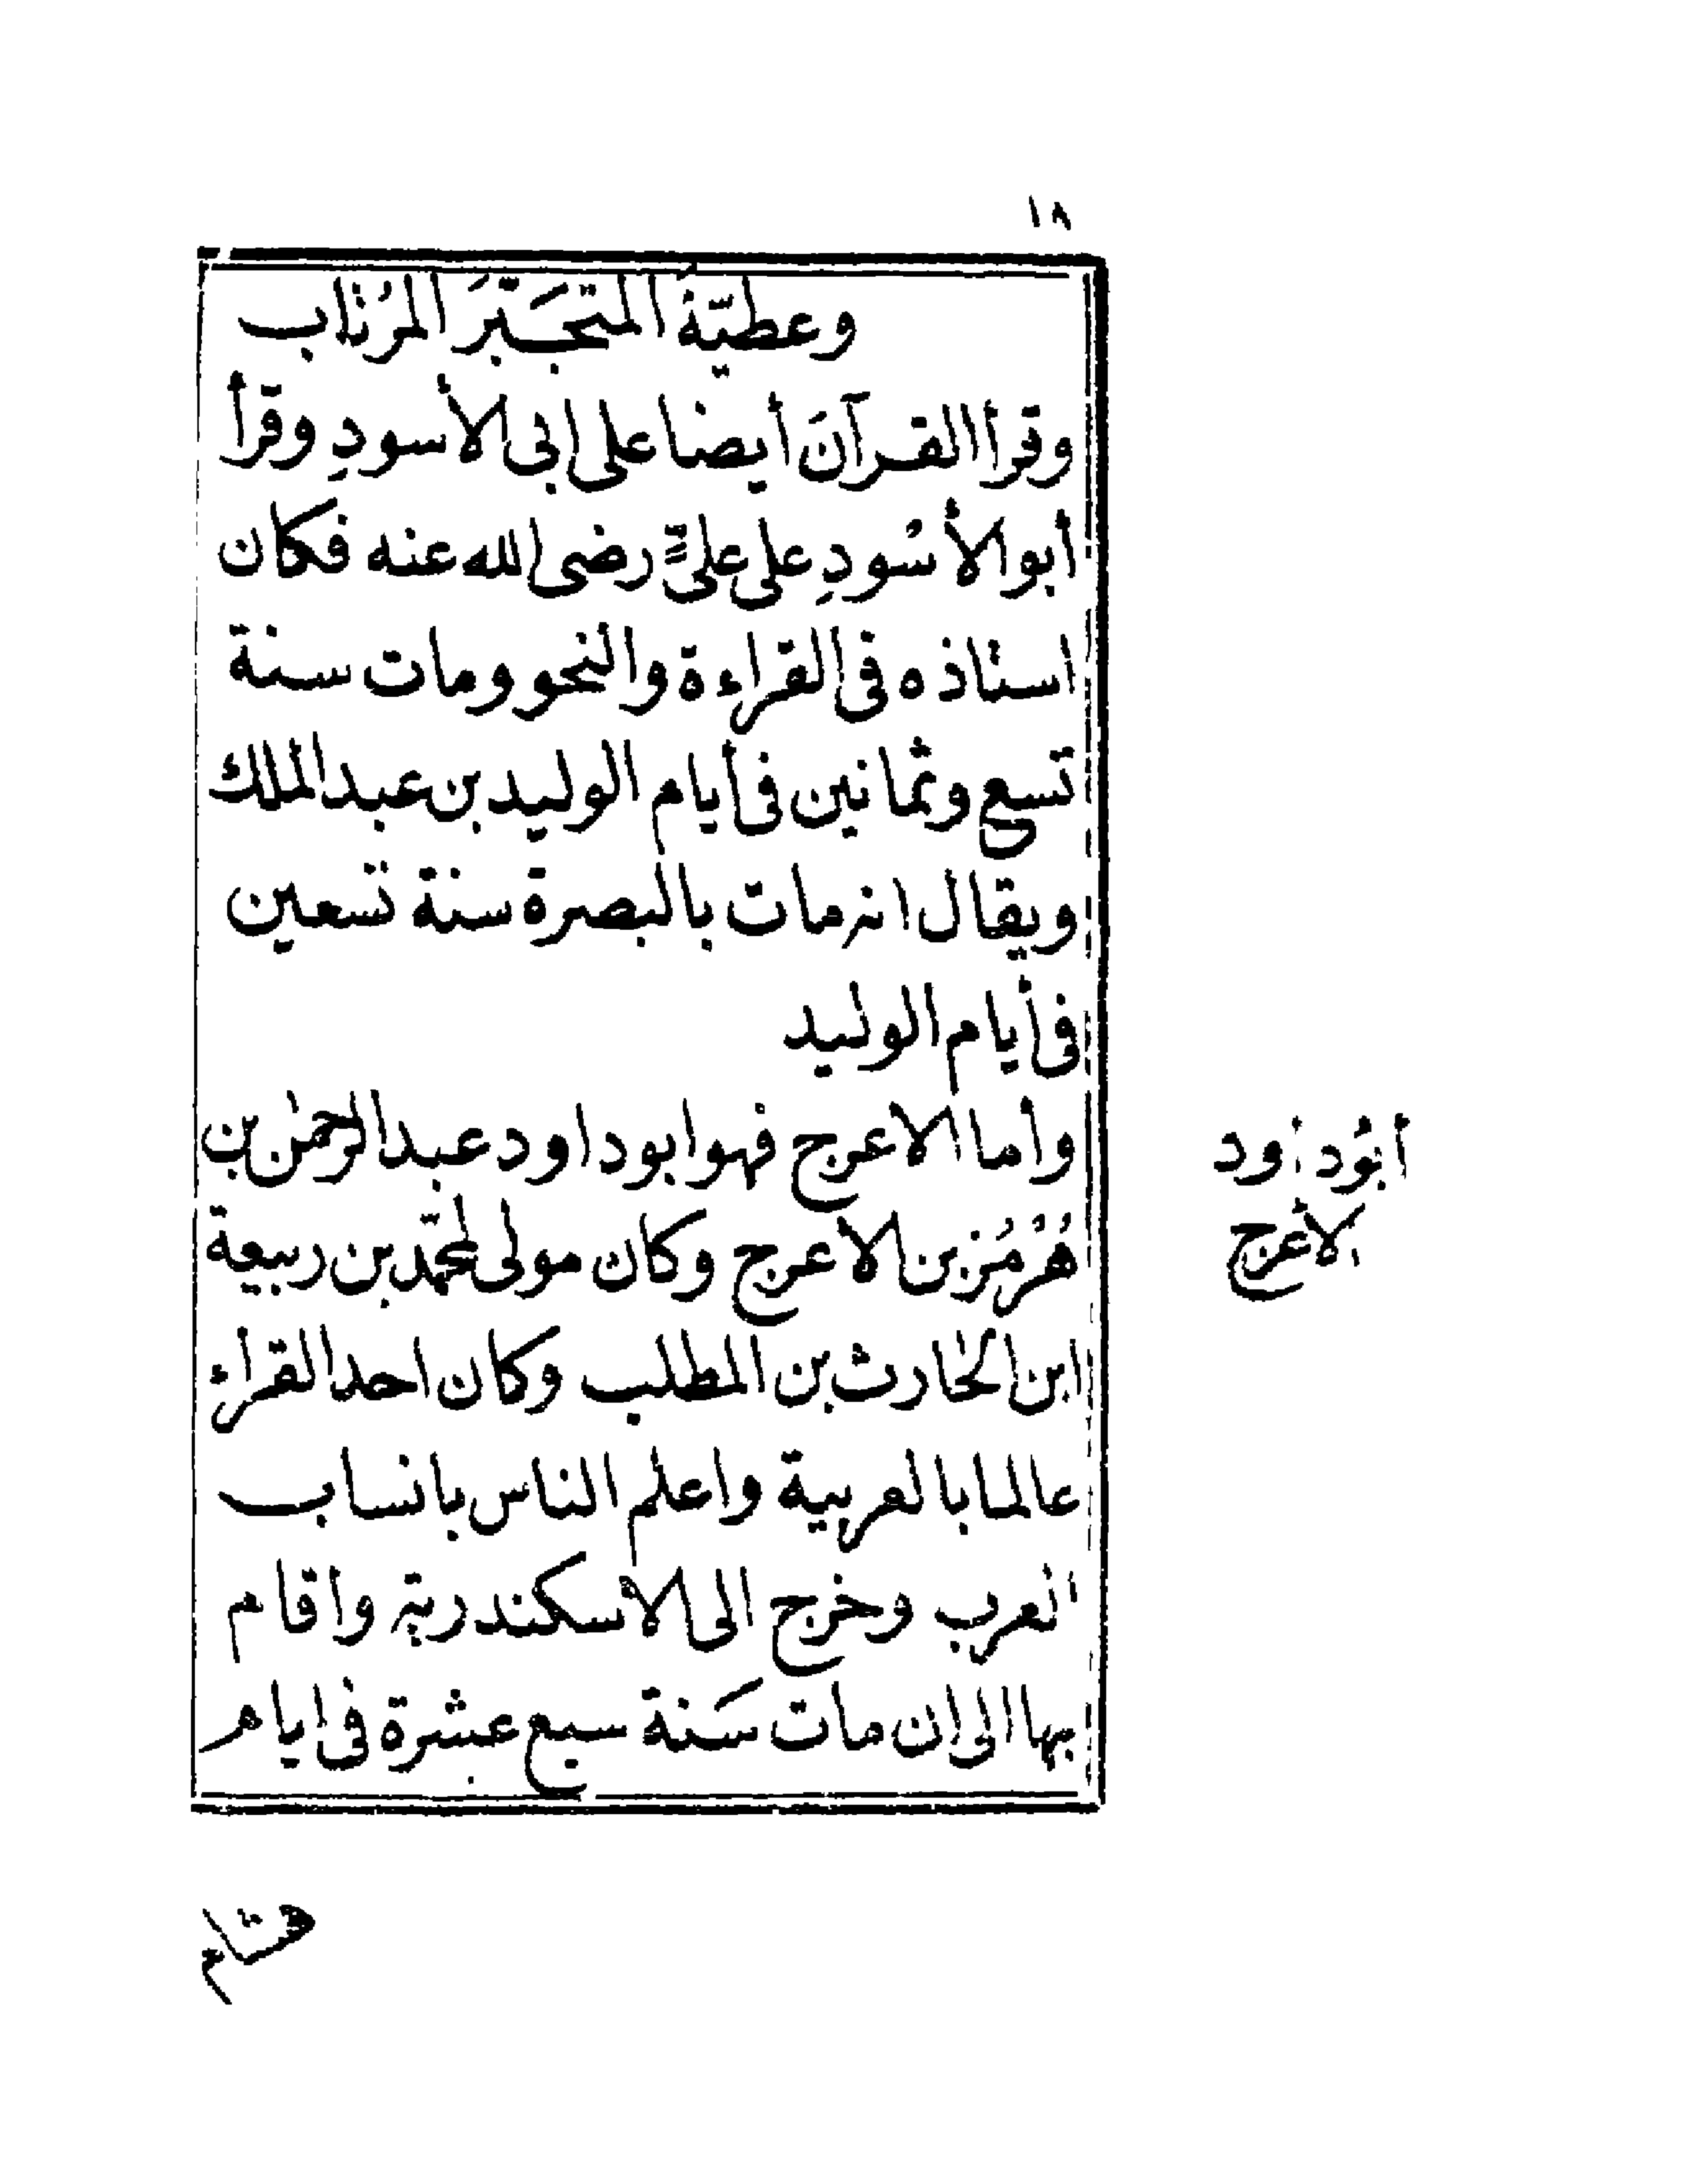 ١٨
وعطيّة المتجَبّرَ المرُتاب
وقرأ القرآنَ أيضا على ابى الأسودِ وقرأ
أبو الأسْودِ على علىٍّ رضى الله عنه فكان
استاذه فى القراءة والنحو ومات سنة
تسع وثمانين فى أيام الوليد بن عبد الملك
ويقال انه مات بالبصرة سنة تسعين
فى أيام الوليد
وأما الاعرج فهو ابو داود عبد الرحمٰن بن
هُرْمُز بن الاعرج وكان مولى لمحمّد بن ربيعة
ابن الحارث بن المطلب وكان احد القراء
عالما بالعربية واعلم الناس بانساب
العرب وخرج الى الاسكندرية واقام
بها الى ان مات سَنة سبع عشرة فى ايام
أبُو داود
الأعرج
هشام